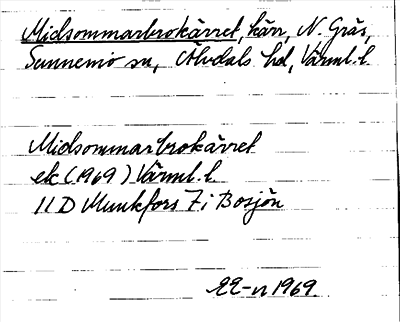 Midsommarbrokärret, kärr, N. Gräs,
Sunnemo sn, Älvdals hd, Värml. l.
Midsommarbrokärret
ek (1969) Värml. l.
11D Munkfors 7i Bosjön
EE-n 1969.